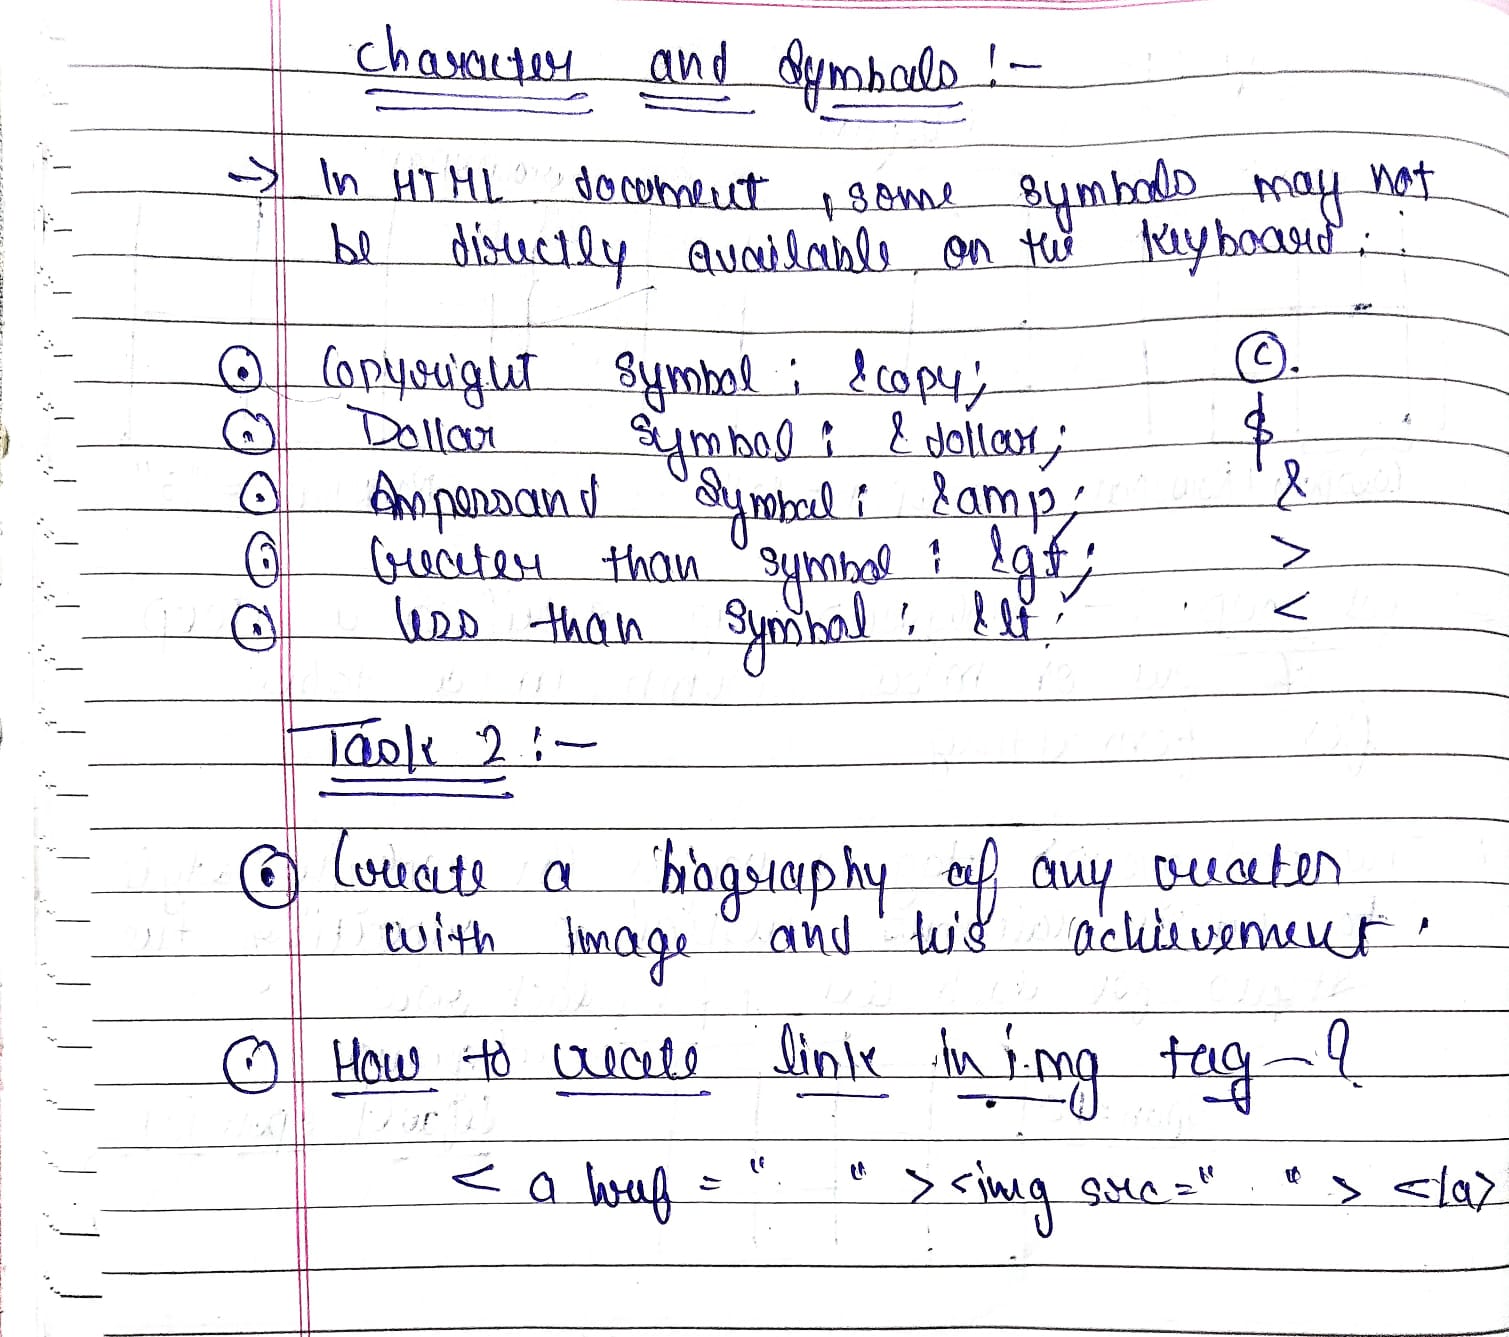 Character and Symbols :-
→ In HTML document, some symbols may not
be directly available on the keyboard.
Copyright Symbol : &copy; ©.
Dollar Symbol : &dollar; $
Ampersand Symbol : &amp; &
Greater than symbol : &gt; >
less than symbol : &lt; <
Task 2 :-
Create a biography of any
with Image and his achievement.
How to create link in img tag - ?
<a href = " " > <img src = " " > </a>